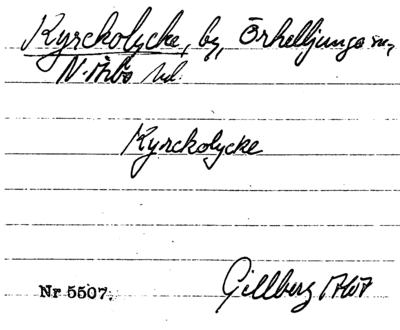 Kyrckolycke, by, Örkelljunga sn,
N. Åsbo hd.
Kyrckolycke
Nr 5507.
Gillberg